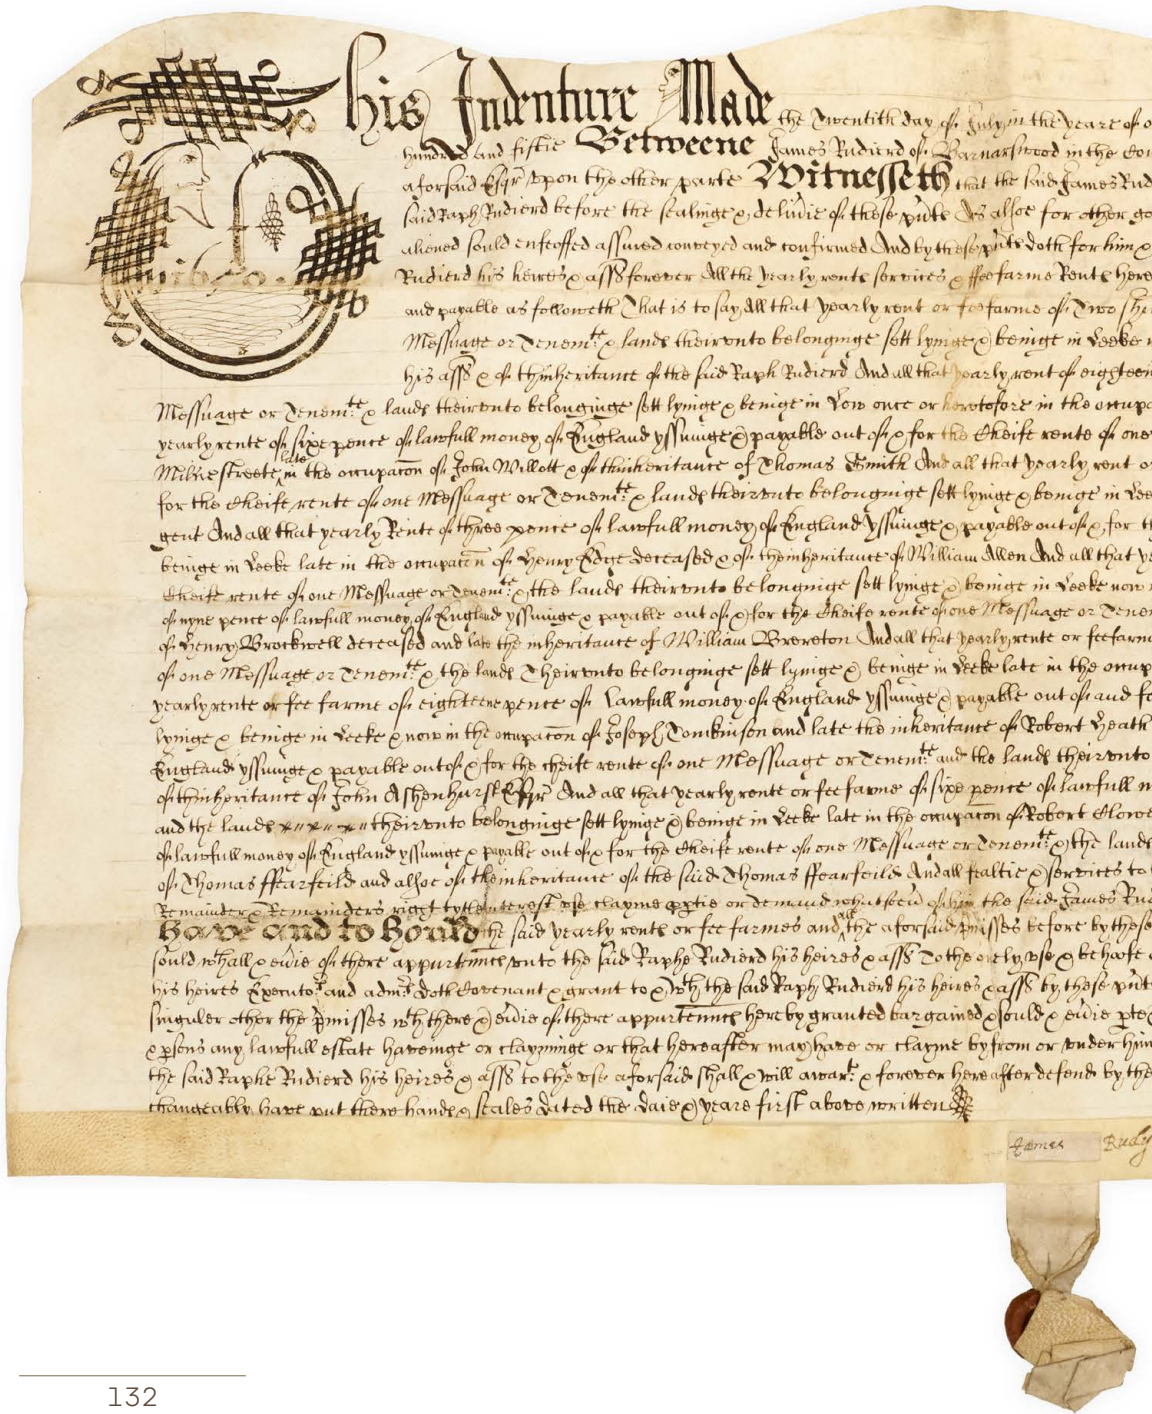 This Indenture Made the Twentith day of July in the yeare of o
hundred and fiftie Betweene James Rudierd of Barnarswood in the Cou
aforsaid Esqr vpon the other parte Witnesseth that the said James Rud
said Raph Rudierd before the sealinge & deliuie of these pnts As alsoe for other go
aliened sould enfeoffed assured conveyed and confirmed And by these pnts doth for him &
Rudierd his heires & asss forever All the yearly rents services & ffee farme Rents here
and payable as followeth That is to say All that yearly rent or fee farme of Two shi
Messuage or Tenemte & lands theirvnto belonginge sett lyinge & beinge in Leeke
his asss & of thinheritance of the said Raph Rudierd And all that yearly rent of eighteen
Messuage or Tenemte & lands theirvnto belonginge sett lyinge & beinge in Low once or heretofore in the occupa
yearly rente of sixe pence of lawfull money of England yssuinge & payable out of & for the Cheife rente of one
Milne streete late in the occupacon of John Willott & of thinheritance of Thomas Smith And all that yearly rent o
for the Cheife rente of one Messuage or Tenemte & lands theirvnto belonginge sett lyinge & beinge in Lee
gent And all that yearly Rente of three pence of lawfull money of England yssuinge & payable out of & for th
beinge in Leeke late in the occupacon of Henry Edge deceased & of theinheritance of William Allen And all that ye
Cheife rente of one Messuage or Tenemte & the lands theirvnto belonginge sett lyinge & beinge in Leeke now
of nyne pence of lawfull money of England yssuinge & payable out of & for the Cheife rente of one Messuage or Tene
of Henry Brockwell deceased and late the inheritance of William Brereton And all that yearly rente or fee farm
of one Messuage or Tenemte & the lands Theirvnto belonginge sett lyinge & beinge in Leeke late in the occup
yearly rente or fee farme of eighteene pence of Lawfull money of England yssuinge & payable out of and fo
lyinge & beinge in Leeke & now in the occupacon of Joseph Tomkinson and late the inheritance of Robert Heath
England yssuinge & payable out of & for the cheife rente of one Messuage or Tenemte and the lands theirvnto
of thinheritance of John Ashenhurst Esqr And all that yearly rente or fee farme of sixe pence of lawfull m
and the lands theirvnto belonginge sett lyinge & beinge in Leeke late in the occupacon of Robert Clowe
of lawfull money of England yssuinge & payable out of & for the Cheife rente of one Messuage or Tenemte & the lands
of Thomas ffearfeild and alsoe of theinheritance of the said Thomas ffearfeild And all fealtie & services to
Remainder & Remainders right tytle interest vse clayme pptie or demand whatsoeu of him the said James Rud
Have and to Hould the said yearly rents or fee farmes and all the aforsaid pmisses before by these
sould whall & euie of there appurtennces vnto the said Raphe Rudierd his heires & asss To the onely vse & behoofe
his heires Executors and admrs doth Covenant & grant to & wth the said Raph Rudierd his heires & asss by these pnts
singuler other the pmisses wth there & euie of there appurtennces hereby granted bargained & sould & euie pte
& psons any lawfull estate haveinge or clayminge or that hereafter may have or clayme by from or vnder him
the said Raphe Rudierd his heires & asss to the vse aforsaid shall & will awarrt & forever hereafter defend by the
changeably have put there hands & seales Dated the Daie & yeare first above written
James Rudy
1650
132